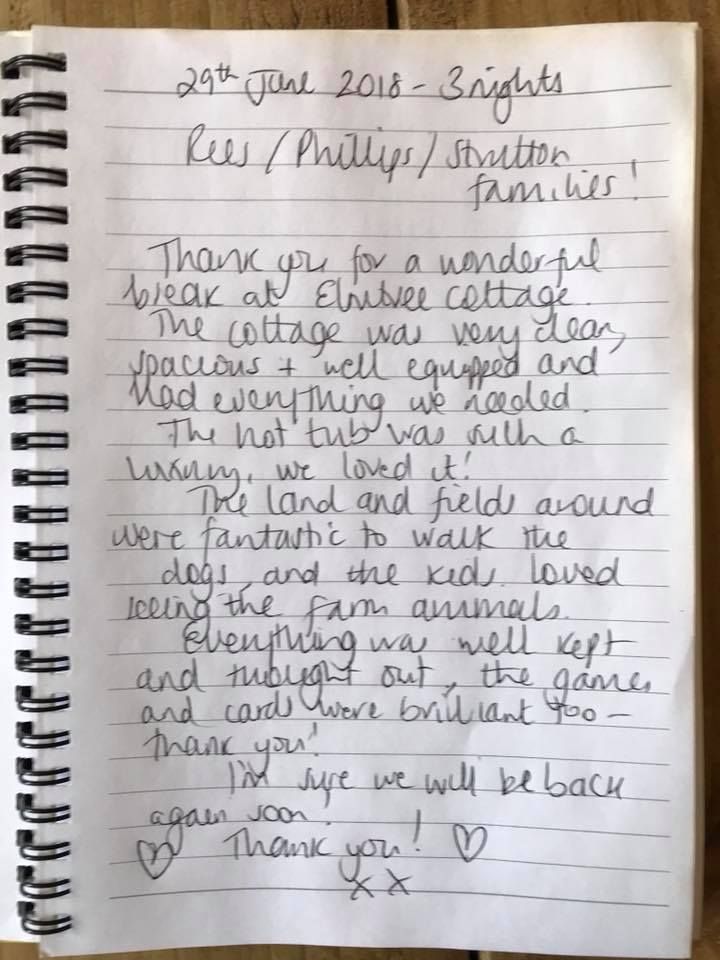 29th June 2018 - 3 nights
Rees / Phillips / Strutton
families!
Thank you for a wonderful
break at Elmtree cottage.
The cottage was very clean,
spacious + well equipped and
had everything we needed.
The hot tub was such a
luxury, we loved it!
The land and fields around
were fantastic to walk the
dogs, and the kids loved
seeing the farm animals.
Everything was well kept
and thought out, the games
and cards were brilliant too -
thank you!
I'm sure we will be back
again soon!
♡ Thank you! ♡
x x